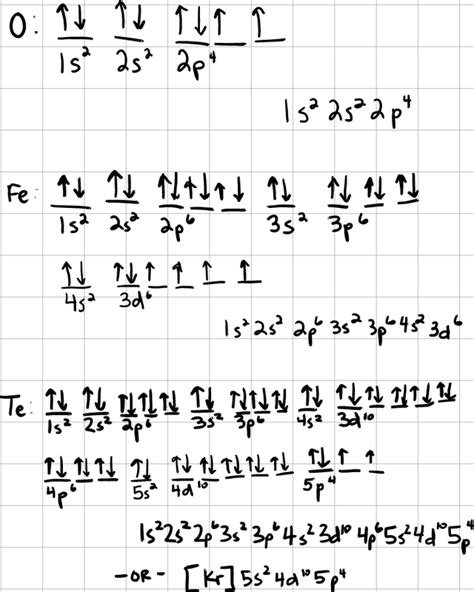 O: ↑↓ ↑↓ ↑↓ ↑ ↑
1s² 2s² 2p⁴
1s² 2s² 2p⁴
Fe: ↑↓ ↑↓ ↑↓ ↑↓ ↑↓ ↑↓ ↑↓ ↑↓ ↑↓
1s² 2s² 2p⁶ 3s² 3p⁶
↑↓ ↑↓ ↑ ↑ ↑ ↑
4s² 3d⁶
1s² 2s² 2p⁶ 3s² 3p⁶ 4s² 3d⁶
Te: ↑↓ ↑↓ ↑↓ ↑↓ ↑↓ ↑↓ ↑↓ ↑↓ ↑↓ ↑↓ ↑↓ ↑↓ ↑↓ ↑↓ ↑↓
1s² 2s² 2p⁶ 3s² 3p⁶ 4s² 3d¹⁰
↑↓ ↑↓ ↑↓ ↑↓ ↑↓ ↑↓ ↑↓ ↑↓ ↑↓ ↑↓ ↑ ↑
4p⁶ 5s² 4d¹⁰ 5p⁴
1s² 2s² 2p⁶ 3s² 3p⁶ 4s² 3d¹⁰ 4p⁶ 5s² 4d¹⁰ 5p⁴
-OR- [Kr] 5s² 4d¹⁰ 5p⁴